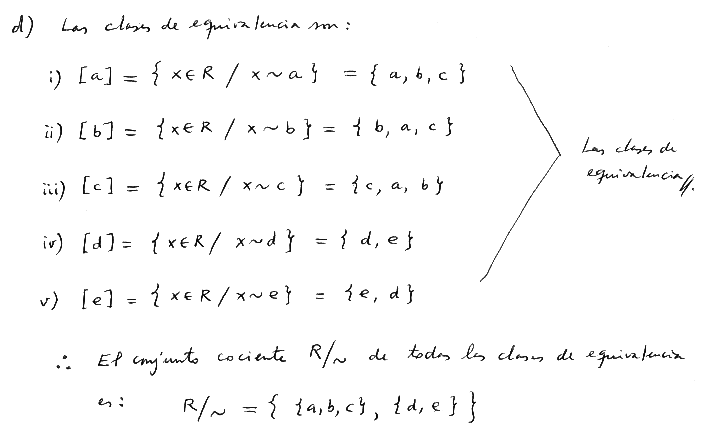 d) Las clases de equivalencia son:
i) [a] = { x ∈ R / x ~ a } = { a, b, c }
ii) [b] = { x ∈ R / x ~ b } = { b, a, c }
iii) [c] = { x ∈ R / x ~ c } = { c, a, b }
iv) [d] = { x ∈ R / x ~ d } = { d, e }
v) [e] = { x ∈ R / x ~ e } = { e, d }
Las clases de
equivalencia //.
∴ El conjunto cociente R/~ de todas las clases de equivalencia
es: R/~ = { {a, b, c}, {d, e} }